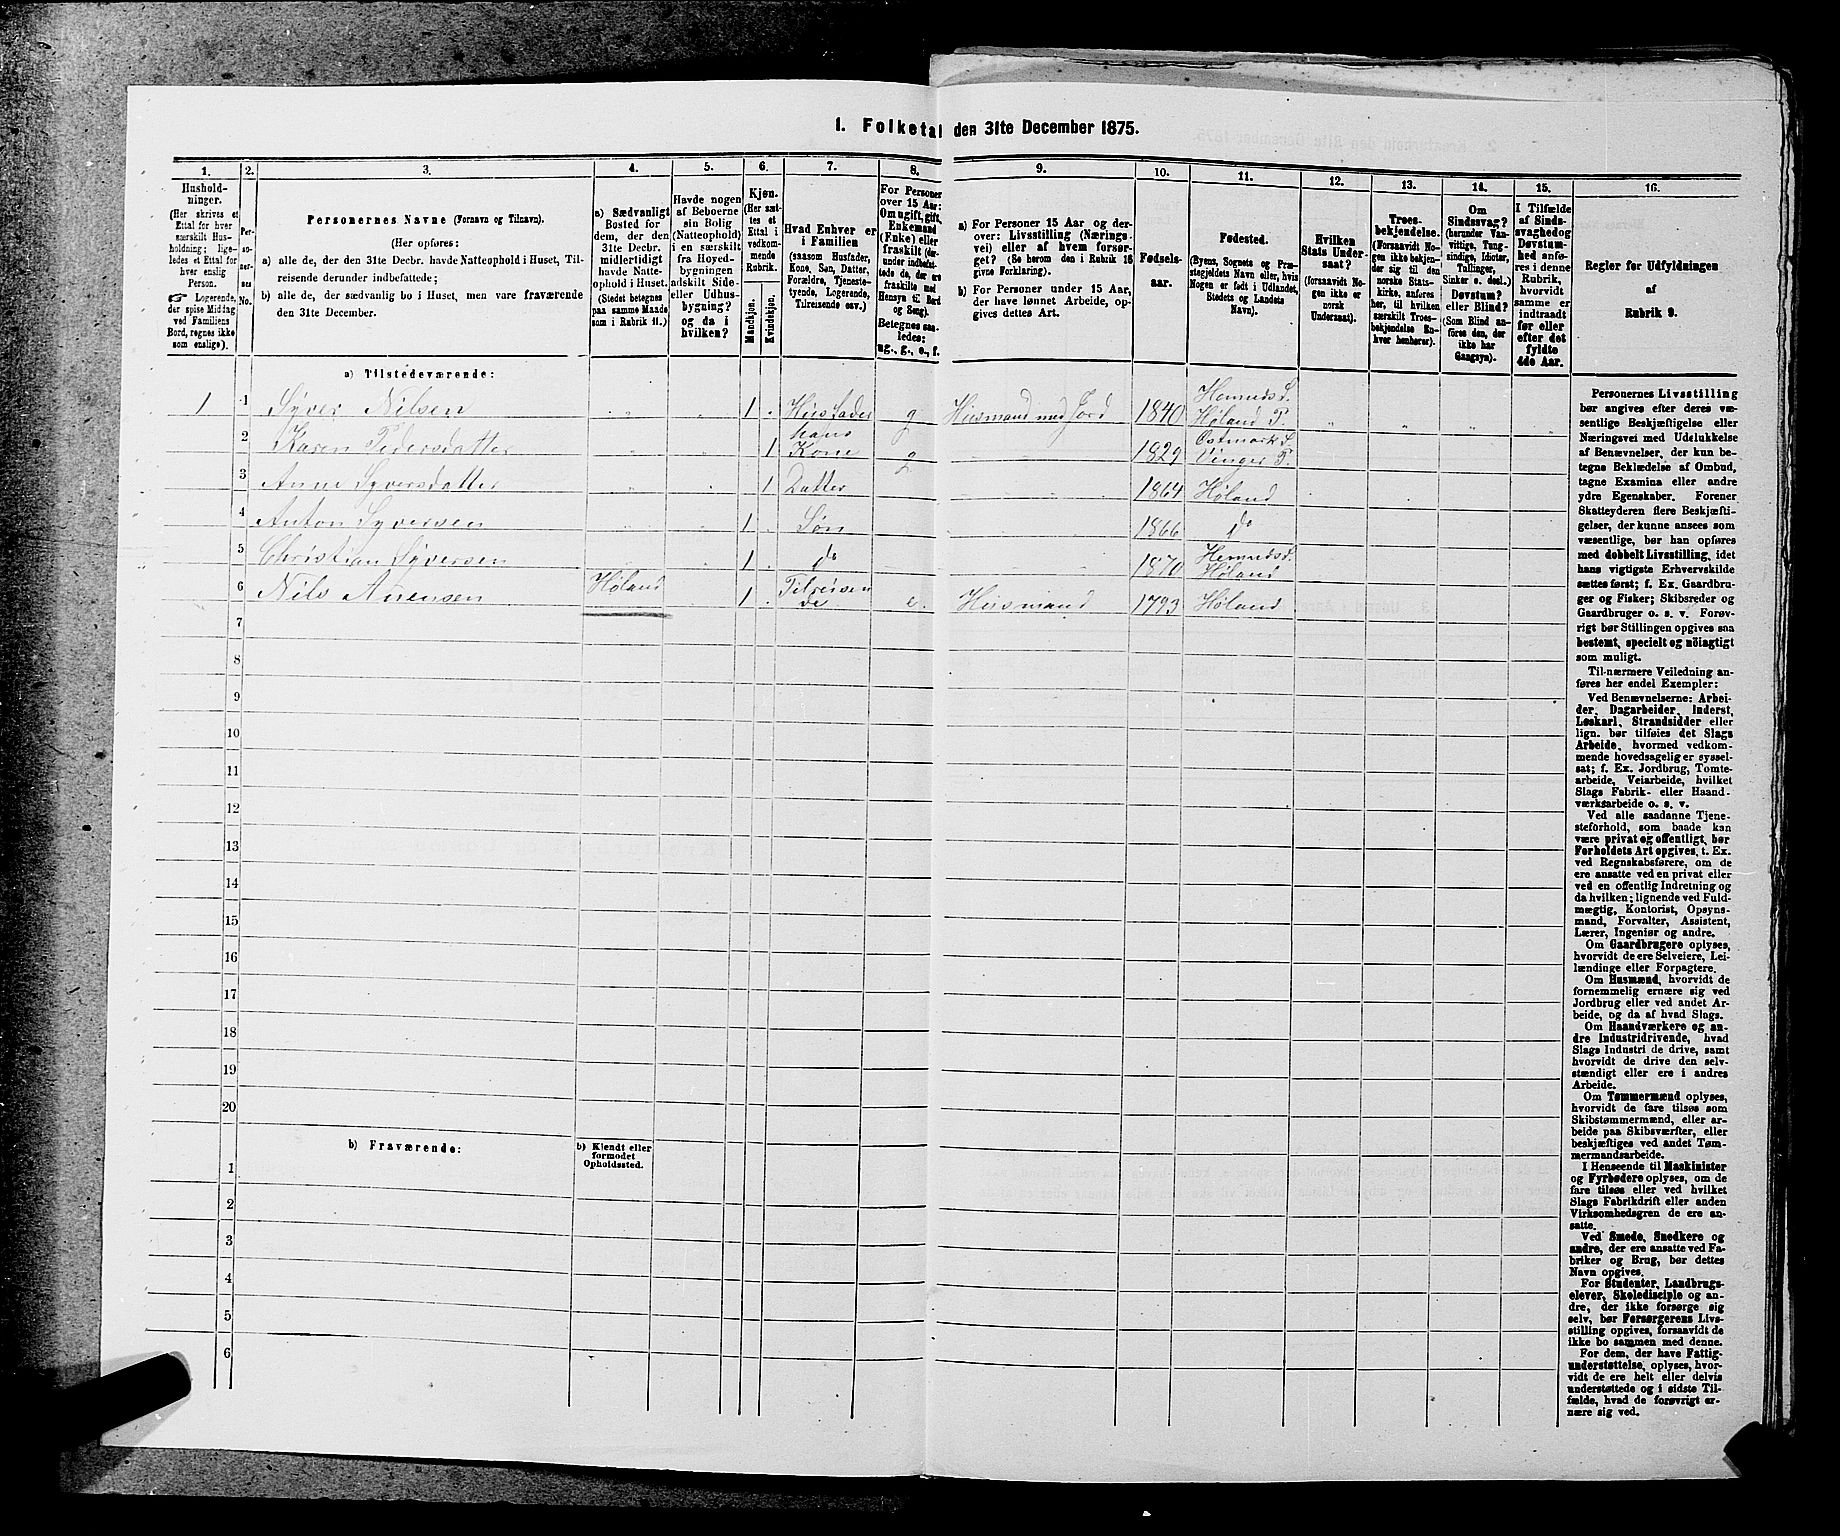 1. Folketal den 31te December 1875.
1.
Hushold-
ninger.
(Her skrives et
Ettal for hver
særskilt Hus-
holdning; lige-
ledes et Ettal for
hver enslig
Person.
☞ Logerende,
der spise Middag
ved Familiens
Bord, regnes ikke
som enslige).
2.
Per-
soner-
nes
No.
3.
Personernes Navne (Fornavn og Tilnavn).
(Her opføres:
a) alle de, der den 31te Decbr. havde Natteophold i Huset, Til-
reisende derunder indbefattede;
b) alle de, der sædvanlig bo i Huset, men vare fraværende
den 31te December.
4.
a) Sædvanligt
Bosted for
dem, der den
31te Decbr.
midlertidigt
havde Natte-
ophold i Huset.
(Stedet betegnes
paa samme Maade
som i Rubrik 11.)
5.
Havde nogen
af Beboerne
sin Bolig
(Natteophold)
i en særskilt
fra Hoved-
bygningen
adskilt Side-
eller Udhus-
bygning?
og da i
hvilken?
6.
Kjøn.
(Her sæt-
tes et
Ettal i
vedkom-
mende
Rubrik.
Mandkjøn.
Kvindekjøn.
7.
Hvad Enhver er
i Familien
(saasom Husfader,
Kone, Søn, Datter,
Forældre, Tjeneste-
tyende, Logerende,
Tilreisende osv.)
8.
For Personer
over 15 Aar:
Om ugift, gift,
Enkemand
(Enke) eller
fraskilt (der-
under indbefat-
tede de, der ere
fraskilte med
Hensyn til Bord
og Seng).
Betegnes saa-
ledes:
ug., g., e., f.
9.
a) For Personer 15 Aar og der-
over: Livsstilling (Nærings-
vei) eller af hvem forsør-
get? (Se herom den i Rubrik 16
givne Forklaring).
b) For Personer under 15 Aar,
der have lønnet Arbeide, op-
gives dettes Art.
10.
Fødsels-
aar.
11.
Fødested.
(Byens, Sognets og Præ-
stegjeldets Navn eller, hvis
Nogen er født i Udlandet,
Stedets og Landets
Navn).
12.
Hvilken
Stats Under-
saat?
(forsaavidt No-
gen ikke er
norsk
Undersaat).
13.
Troes-
bekjendelse.
(Forsaavidt No-
gen ikke bekjen-
der sig til den
norske Stats-
kirke, anføres
her, til hvilken
særskilt Troes-
bekjendelse En-
hver henhører).
14.
Om
Sindssvag?
(herunder Van-
vittige, Tung-
sindige, Idioter,
Tullinger,
Sinker o. desl.)
Døvstum?
eller Blind?
(Som Blind an-
føres den, der
ikke har
Gangsyn).
15.
I Tilfælde
af Sinds-
svaghed og
Døvstum-
hed anfø-
res i denne
Rubrik,
hvorvidt
samme er
indtraadt
før eller
efter det
fyldte
4de Aar.
16.
Regler for Udfyldningen
af
Rubrik 9.
a) Tilstedeværende:
1 1 Syver Nilsen 1 Husfader g Husmand med Jord 1840 Hemnæs S. Høland P.
2 Karen Pedersdatter 1 hans Kone g 1829 Østmark S. Vinger P.
3 Anne Syversdatter 1 Datter 1864 Høland
4 Anton Syversen 1 Søn 1866 do
5 Christian Syversen 1 do 1870 Hemnæs S. Høland
6 Nils Anensen Høland 1 Tilreisende e. Husmand 1793 Høland
7
8
9
10
11
12
13
14
15
16
17
18
19
20
b) Fraværende:
b) Kjendt eller
formodet
Opholdssted.
1
2
3
4
5
6
Personernes Livsstilling
bør angives efter deres væ-
sentlige Beskjæftigelse eller
Næringsvei med Udelukkelse
af Benævnelser, der kun be-
tegne Beklædelse af Ombud,
tagne Examina eller andre
ydre Egenskaber. Forener
Skatteyderen flere Beskjæfti-
gelser, der kunne ansees som
væsentlige, bør han opføres
med dobbelt Livsstilling, idet
hans vigtigste Erhvervskilde
sættes først; f. Ex. Gaardbru-
ger og Fisker; Skibsreder og
Gaardbruger o. s. v. Forøv-
rigt bør Stillingen opgives saa
bestemt, specielt og nöiagtigt
som muligt.
Til nærmere Veiledning an-
føres her endel Exempler:
Ved Benævnelserne: Arbei-
der, Dagarbeider, Inderst,
Løskarl, Strandsidder eller
lign. bør tilføies det Slags
Arbeide, hvormed vedkom-
mende hovedsagelig er syssel-
sat; f. Ex. Jordbrug, Tomte-
arbeide, Veiarbeide, hvilket
Slags Fabrik- eller Haand-
værksarbeide o. s. v.
Ved alle saadanne Tjene-
steforhold, som baade kan
være privat og offentligt, bør
Forholdets Art opgives, t. Ex.
ved Regnskabsførere, om de
ere ansatte ved en privat eller
ved en offentlig Indretning og
da hvilken; lignende ved Fuld-
mægtig, Kontorist, Opsyns-
mand, Forvalter, Assistent,
Lærer, Ingeniør og andre.
Om Gaardbrugere oplyses,
hvorvidt de ere Selveiere, Lei-
lændinge eller Forpagtere.
Om Husmænd, hvorvidt de
fornemmelig ernære sig ved
Jordbrug eller ved andet Ar-
beide, og da af hvad Slags.
Om Haandværkere og an-
dre Industridrivende, hvad
Slags Industri de drive, samt
hvorvidt de drive den selv-
stændigt eller ere i andres
Arbeide.
Om Tømmermænd oplyses,
hvorvidt de fare tilsøs som
Skibstømmermænd, eller ar-
beide paa Skibsværfter, eller
beskjæftiges ved andet Tøm-
mermandsarbeide.
I Henseende til Maskinister
og Fyrbødere oplyses, om de
fare tilsøs eller ved hvilket
Slags Fabrikdrift eller anden
Virksomhedsgren de ere an-
satte.
Ved Smede, Snedkere og
andre, der ere ansatte ved Fa-
briker og Brug, bør dettes
Navn opgives.
For Studenter, Landbrugs-
elever, Skoledisciple og an-
dre, der ikke forsørge sig
selv, bør Forsørgerens Livs-
stilling opgives, forsaavidt de
ikke bo sammen med denne.
For dem, der have Fattig-
understøttelse, oplyses, hvor-
vidt de ere helt eller delvis
understøttede og i sidste Til-
fælde, hvad de forøvrigt er-
nære sig ved.